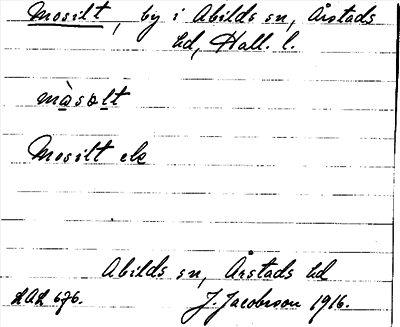 Mosilt, by i Abilds sn, Årstads
hd, Hall. l.
mòsælt
Mosilt ek
Abilds sn, Årstads hd
LAL 676. J. Jacobsson 1916.